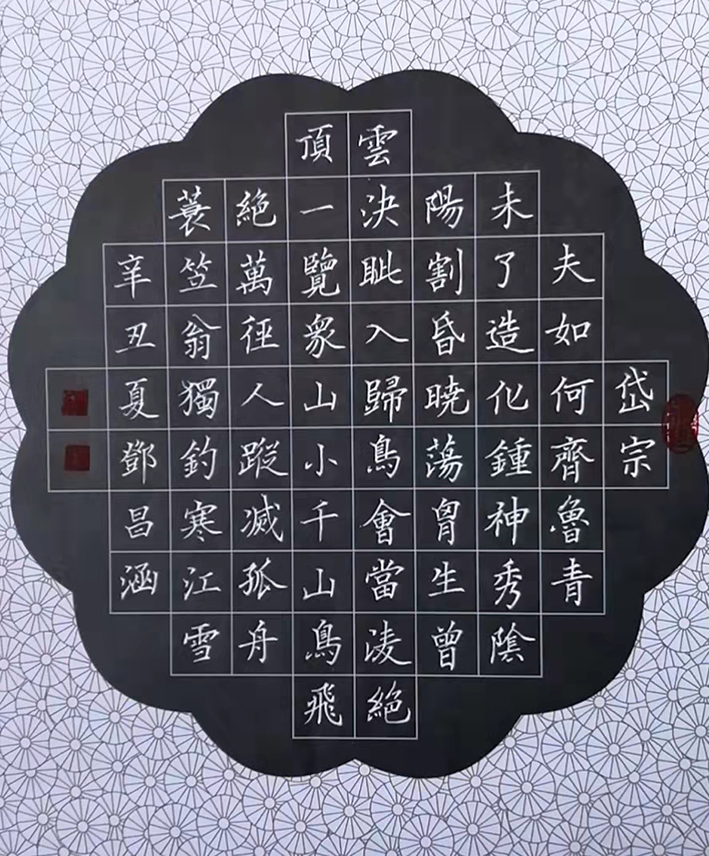 岱宗
夫如何齊魯青
未了造化鍾神秀陰
陽割昏曉蕩胷生曾
雲決眦入歸鳥會當凌絕
頂一覽衆山小千山鳥飛
絕萬徑人蹤滅孤舟
蓑笠翁獨釣寒江雪
辛丑夏鄧昌涵